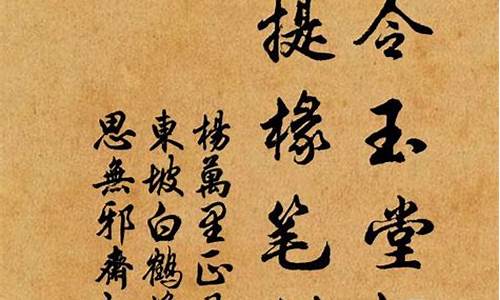 令玉堂
提椽笔
杨萬里正月
東坡白鶴
思無邪齋